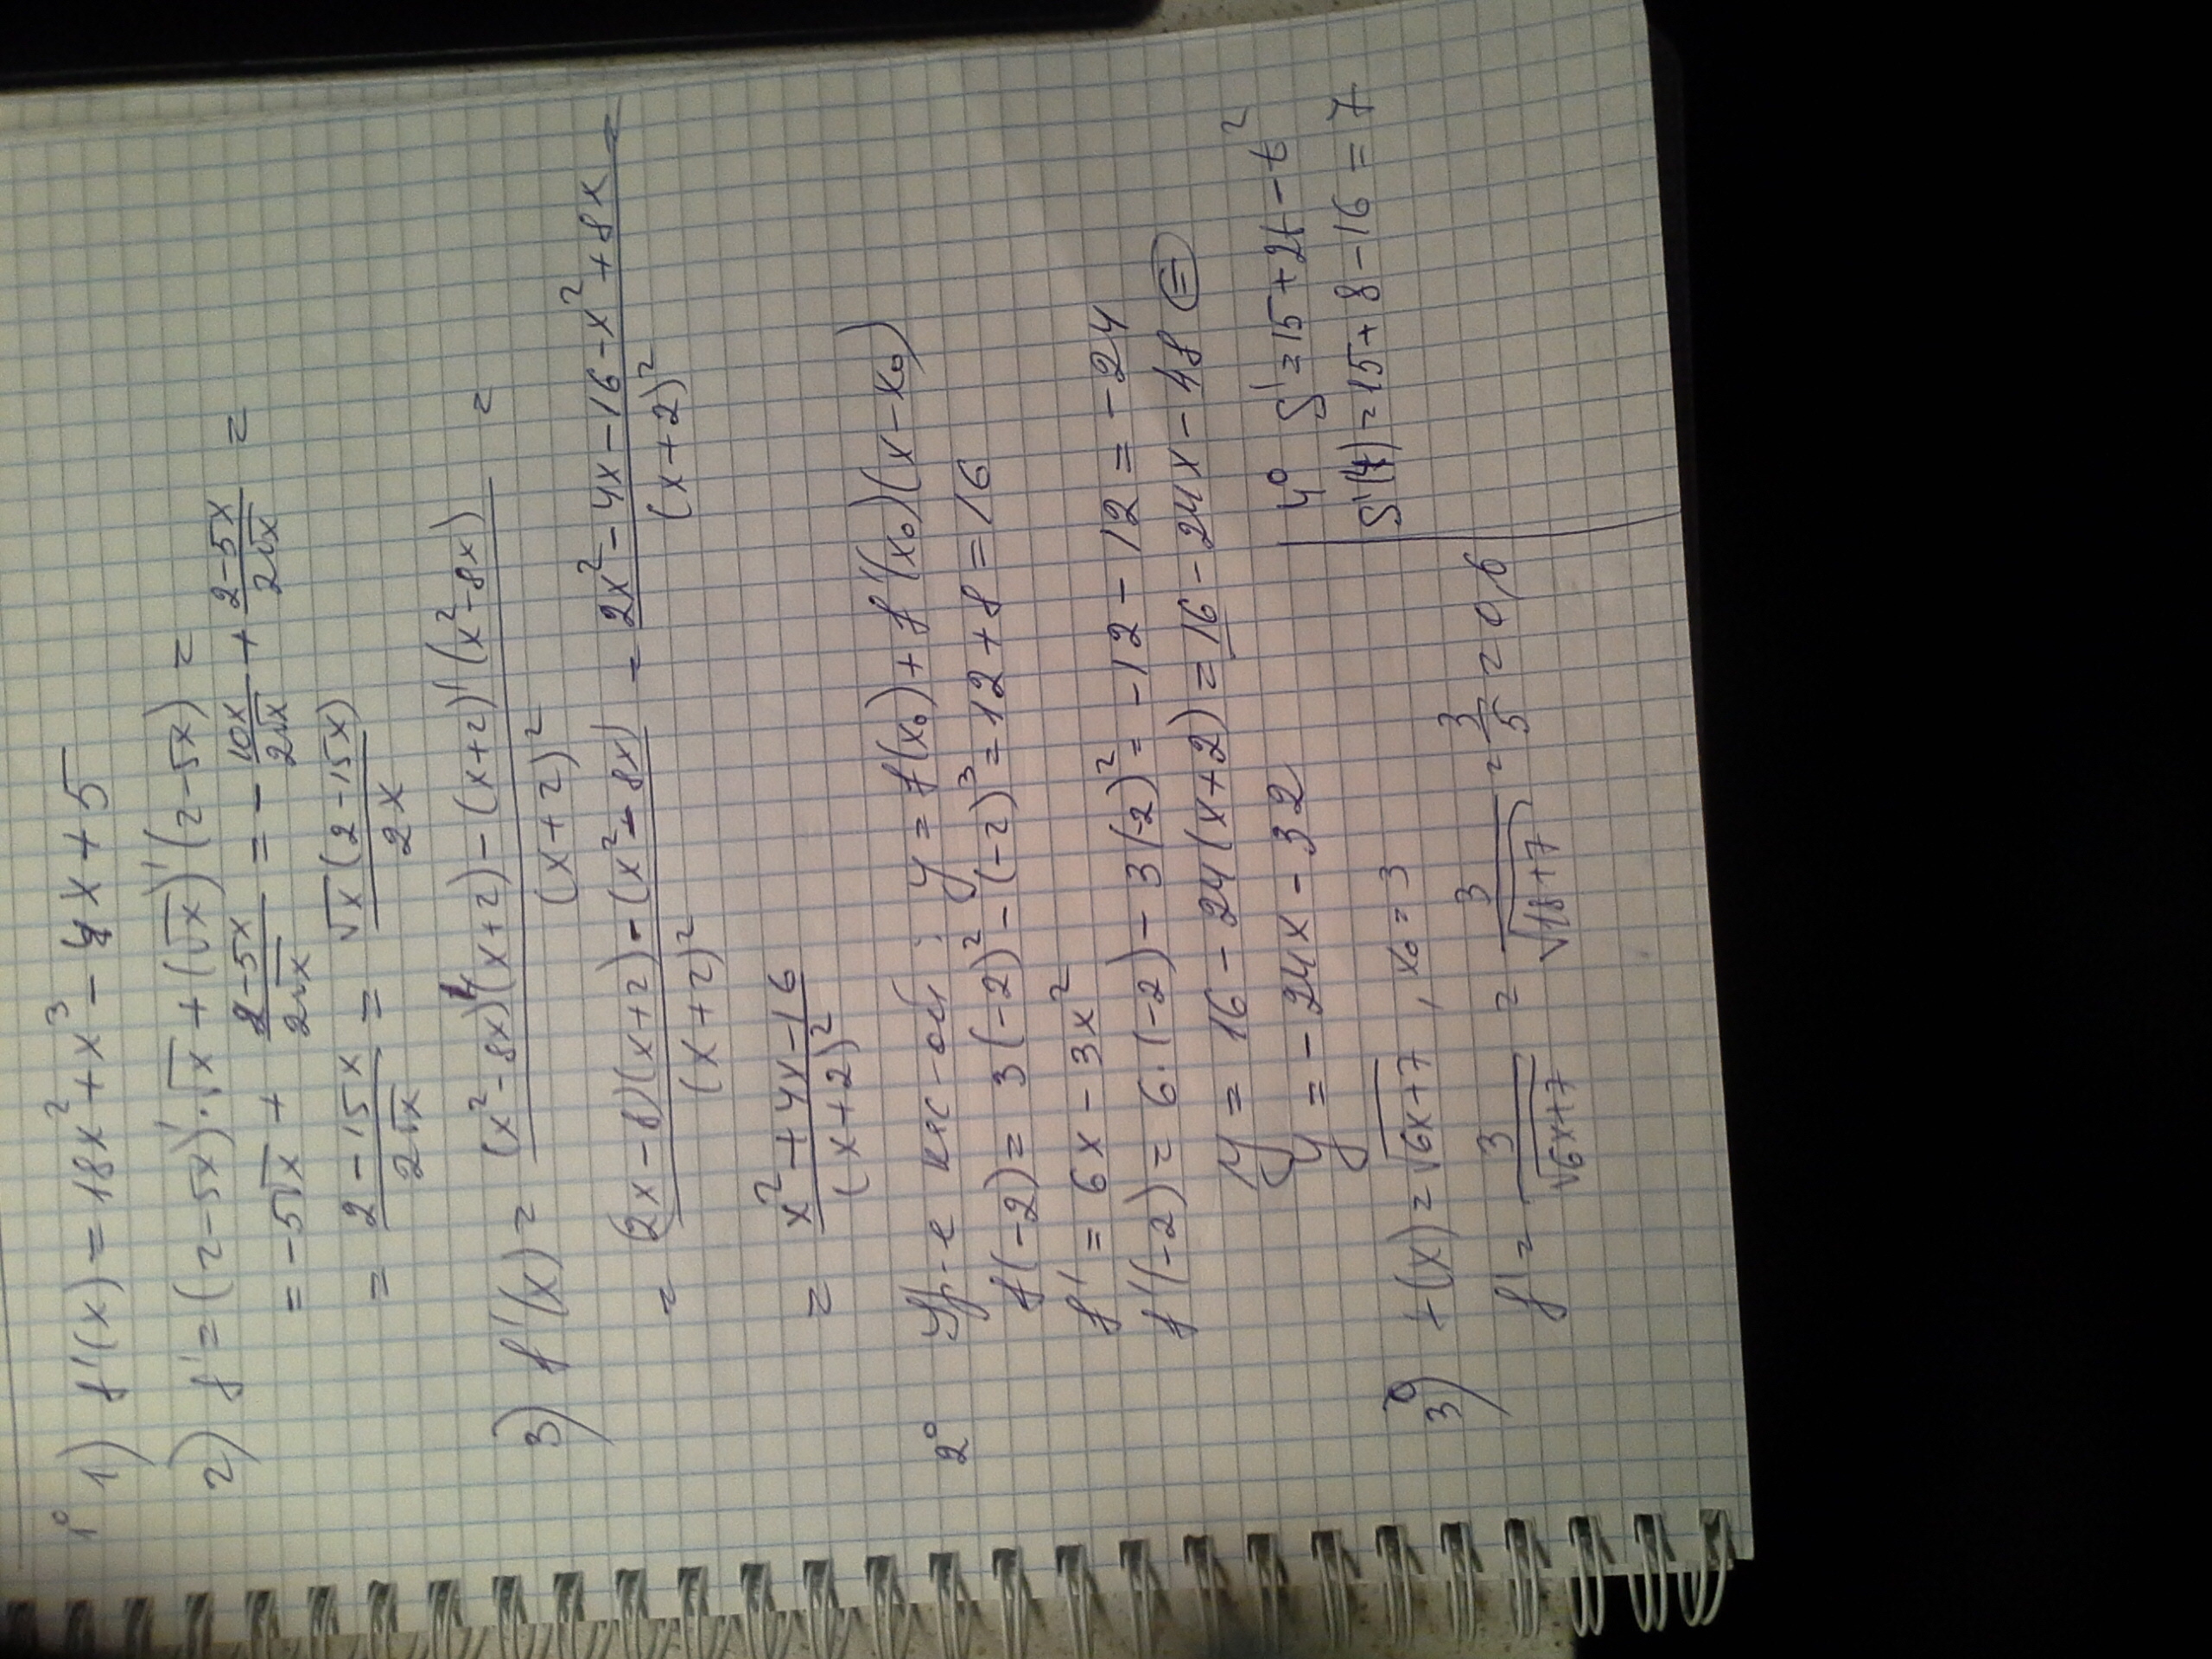 1° 1) f'(x) = 18x² + x³ - 4x + 5
2) f' = (2-5x)'·√x + (√x)'(2-5x) =
= -5√x + (2-5x)/(2√x) = - 10x/(2√x) + (2-5x)/(2√x) =
= (2-15x)/(2√x) = √x(2-15x)/(2x)
3) f'(x) = ((x²-8x)'(x+2) - (x+2)'(x²-8x))/(x+2)² =
= ((2x-8)(x+2) - (x²-8x))/(x+2)² = (2x²-4x-16-x²+8x)/(x+2)² =
= (x²+4x-16)/(x+2)²
2° Ур-е кас-ой: y = f(x₀) + f'(x₀)(x-x₀)
f(-2) = 3(-2)² - (-2)³ = 12 + 8 = 16
f' = 6x - 3x²
f'(-2) = 6·(-2) - 3(-2)² = -12 - 12 = -24
y = 16 - 24(x+2) = 16 - 24x - 48 (=)
y = -24x - 32
3°) f(x) = √(6x+7), x₀ = 3
f' = 3/√(6x+7) = 3/√(18+7) = 3/5 = 0,6
4° S' = 15 + 2t - t²
S'(4) = 15 + 8 - 16 = 7